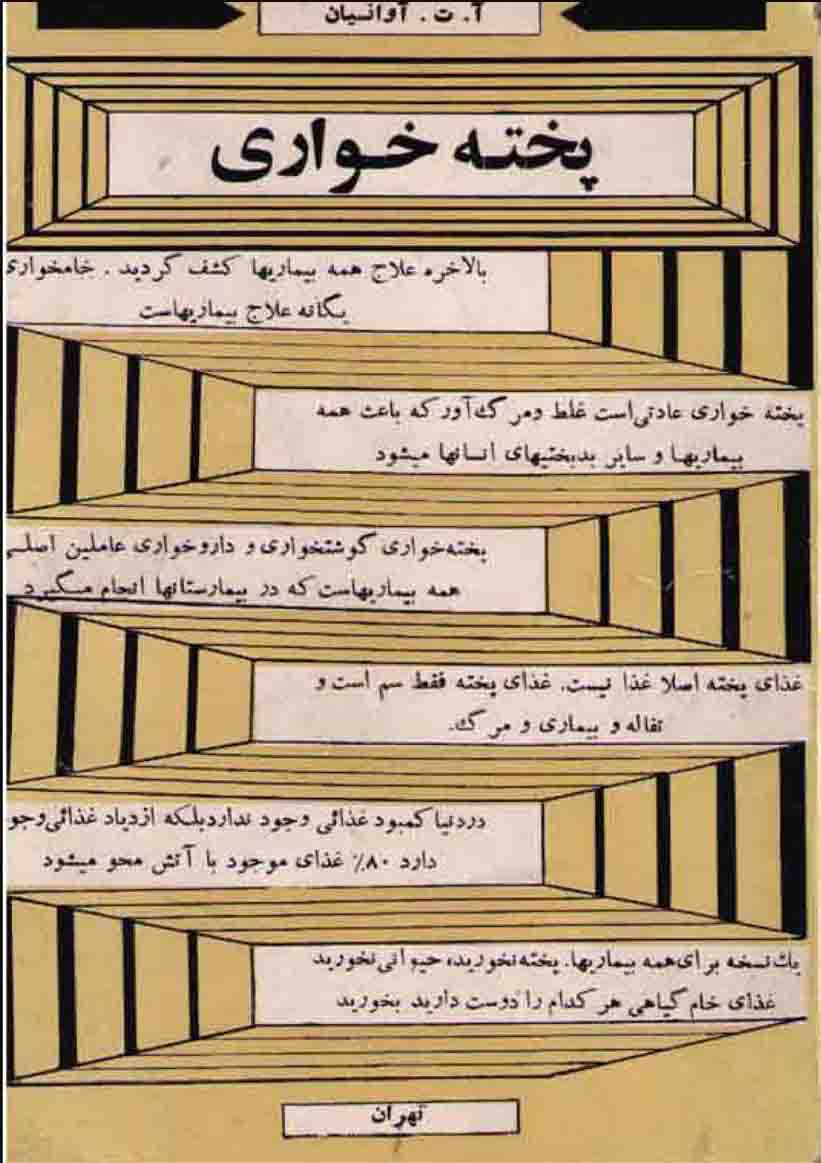 آ. ت. آوانسیان
پخته خواری
بالاخره علاج همه بیماریها کشف گردید. خامخواری
یگانه علاج بیماریهاست
پخته خواری عادتی است غلط ومرگ آور که باعث همه
بیماریها و سایر بدبختیهای انسانها میشود
پخته‌خواری گوشتخواری و داروخواری عاملین اصلی
همه بیماریهاست که در بیمارستانها انجام میگیرد
غذای پخته اصلا غذا نیست. غذای پخته فقط سم است و
تفاله و بیماری و مرگ.
دردنیا کمبود غذائی وجود نداردبلکه ازدیاد غذائی وجو
دارد ۸۰٪ غذای موجود با آتش محو میشود
یک نسخه برای همه بیماریها. پخته نخورید، حیوانی نخورید
غذای خام گیاهی هر کدام را دوست دارید بخورید
تهران